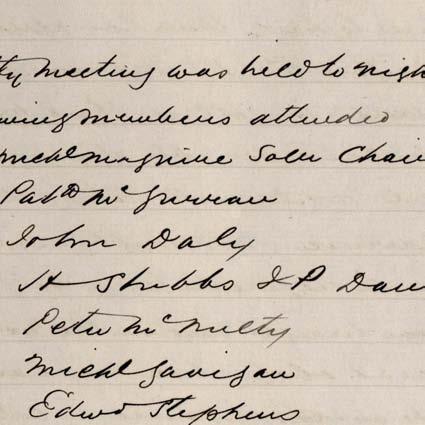 ty meeting was held to nigh
owing members attended
Michl Maguire Solr Chai
Patk McGurran
John Daly
H Stubbs J P Dan
Peter McNulty
Michl Gavigan
Edwd Stephens